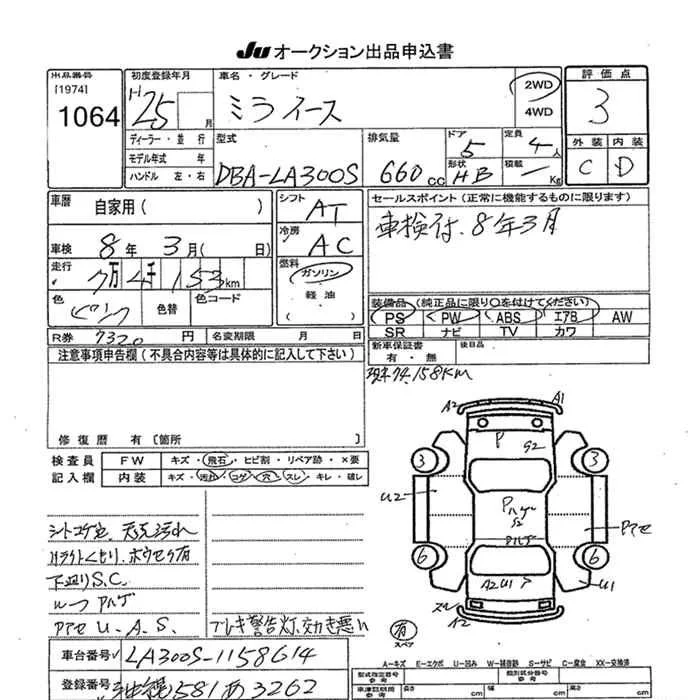 Ju オークション出品申込書
出品番号
[1974]
1064
初度登録年月
H25 月
ディーラー・並行
モデル年式 年
ハンドル 左・右
車名・グレード
ミライース
2WD
4WD
型式
DBA-LA300S
排気量
660 cc
ドア
5
形状
HB
定員
4人
積載
— Kg
評価点
3
外装 内装
C D
車歴
自家用( )
車検 8年 3月( 日)
走行
7万4千153km
色
ピンク
色替
色コード
シフト
AT
冷房
AC
燃料
ガソリン
軽油
( )
セールスポイント(正常に機能するものに限ります)
車検付、8年3月
装備品(純正品に限り○を付けてください)
PS PW ABS エアB AW
SR ナビ TV カワ
R券 7320 円 名変期限 月 日
新車保証書
有・無
後日品
注意事項申告欄(不具合内容等は具体的に記入して下さい)
現車74,158KM
修復歴 有〔箇所 〕
検査員
記入欄
FW キズ・飛石・ヒビ割・リペア跡・×要
内装 キズ・汚れ・コゲ・穴・スレ・キレ・破レ
シートコゲ穴、天元汚れ
ハライトくもり、ホウセラ有
下廻りS.C
ルーフ Pハゲ
Pアセ U.A.S.
ブレーキ警告灯、効き悪い
A2 A1
P G2
3 3
U2
Pハゲ
S2
Pハゲ
Pアセ
6 6
A2U1 P
U1
スレ A2
有
スペア
A=キズ E=エクボ U=凹み W=補修跡 S=サビ C=腐食 XX=交換済
車台番号 LA300S-1158614
登録番号 沖縄581あ3262
型式指定番号
参考
類別区分番号
参考
車検証記載
参考
長さ cm 幅 cm 高さ cm